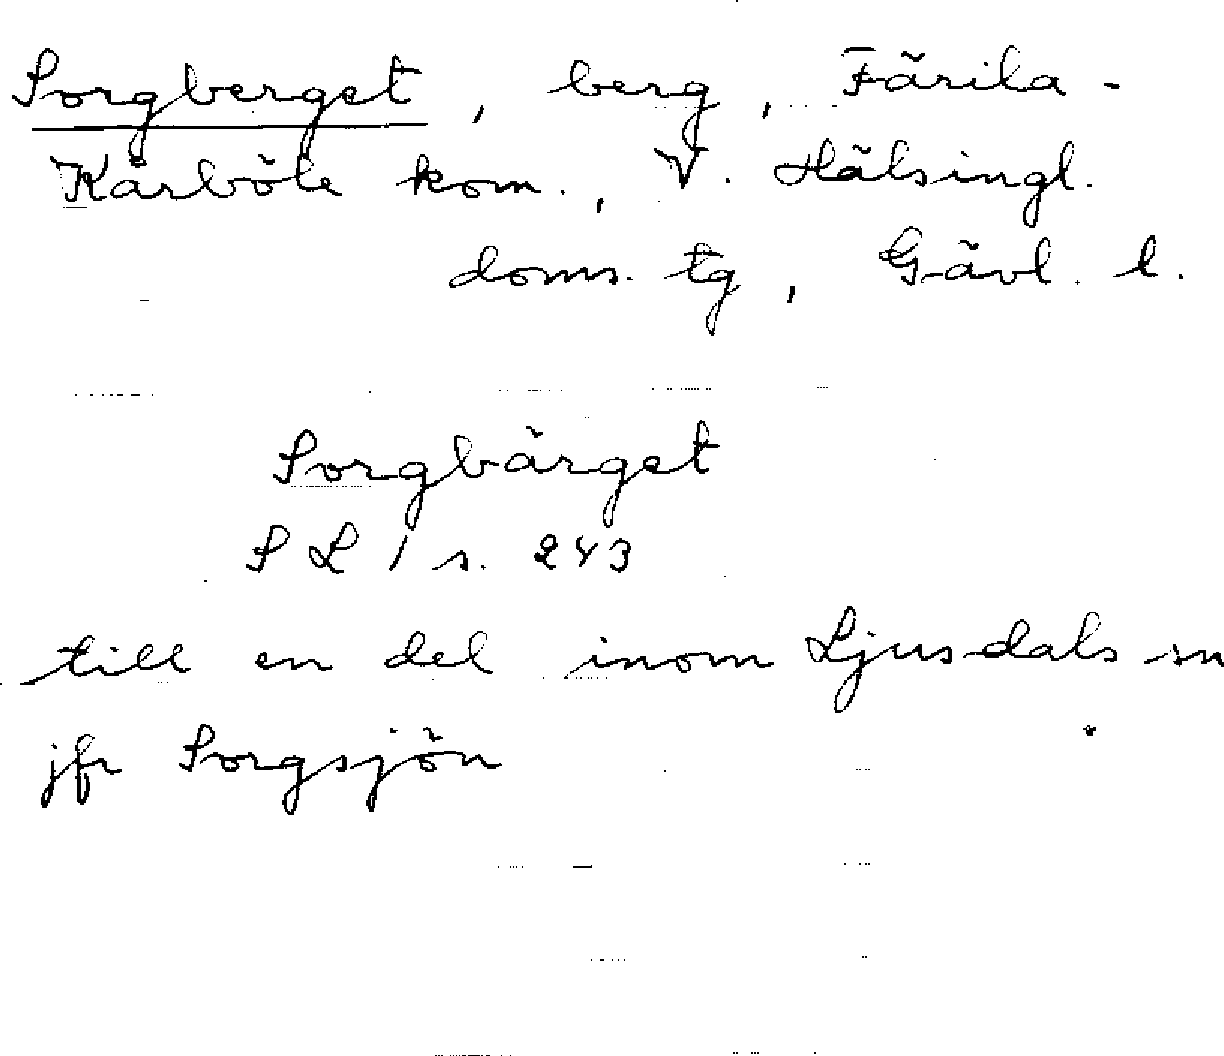 Sorgberget, berg, Färila-
Kårböle kom., V. Hälsingl.
doms. tg, Gävl. l.
Sorgbärget
SL 1 s. 243
till en del inom Ljusdals sn
jfr Sorgsjön